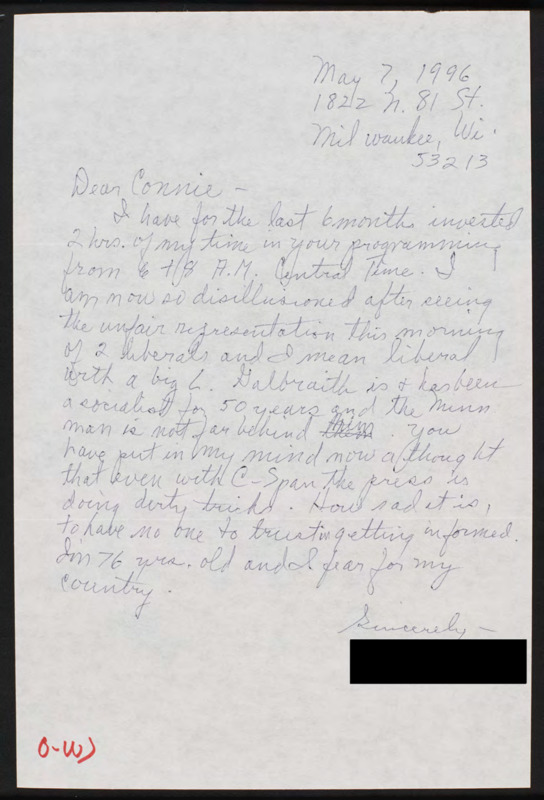 May 7, 1996
1822 N. 81 St.
Milwaukee, Wi.
53213
Dear Connie -
I have for the last 6 months invested
2 hrs. of my time in your programming
from 6 to 8 A.M. Central Time. I
am now so disillusioned after seeing
the unfair representation this morning
of 2 liberals and I mean liberal
with a big L. Galbraith is & has been
a socialist for 50 years and the Minn
man is not far behind him. You
have put in my mind now a thought
that even with C-Span the press is
doing dirty tricks. How sad it is,
to have no one to trust in getting informed.
I'm 76 yrs. old and I fear for my
country.
Sincerely -
O-W)